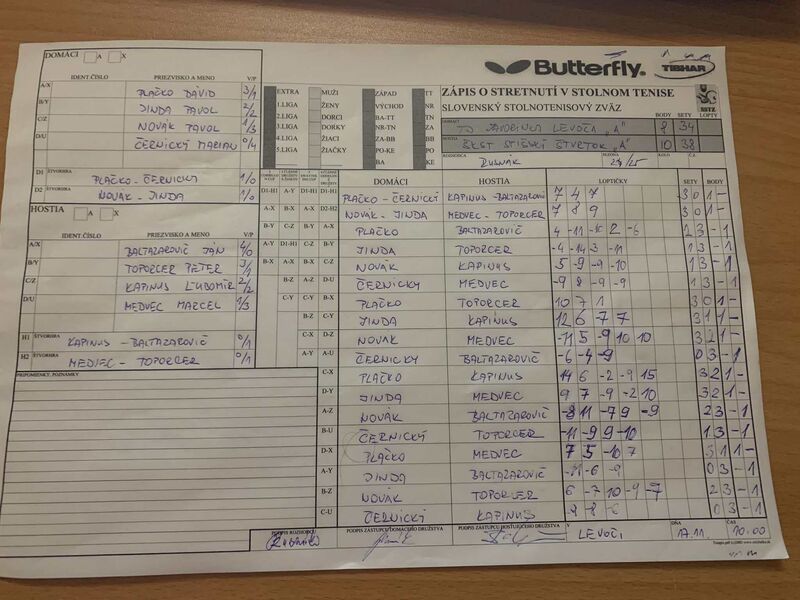 DOMÁCI A X
IDENT.ČÍSLO PRIEZVISKO A MENO V/P
A/X PLAČKO DÁVID 3/1
B/Y JINDA PAVOL 2/2
C/Z NOVÁK PAVOL 1/3
D/U ČERNICKÝ MARIAN 0/4
D1 ŠTVORHRA PLAČKO - ČERNICKÝ 1/0
D2 NOVÁK - JINDA 1/0
HOSTIA A X
IDENT.ČÍSLO PRIEZVISKO A MENO V/P
A/X BALTAZAROVIČ JÁN 4/0
B/Y TOPORCER PETER 3/1
C/Z KAPINUS ĽUBOMÍR 2/2
D/U MEDVEC MARCEL 1/3
H1 ŠTVORHRA KAPINUS - BALTAZAROVIČ 0/1
H2 MEDVEC - TOPORCER 0/1
PRIPOMIENKY, POZNÁMKY
EXTRA MUŽI ZÁPAD TT
1.LIGA ŽENY VÝCHOD NR
2.LIGA DORCI BA-TT TN
3.LIGA DORKY NR-TN ZA
4.LIGA ŽIACI ZA-BB BB
5.LIGA ŽIAČKY PO-KE PO
BA KE
Butterfly. TIBHAR
ZÁPIS O STRETNUTÍ V STOLNOM TENISE
SLOVENSKÝ STOLNOTENISOVÝ ZVÄZ SSTZ
DOMÁCI BODY SETY LOPTY
TJ JAVORINKA LEVOČA "A" 8 34
HOSTIA
ŠKST SPIŠSKÝ ŠTVRTOK "A" 10 38
ROZHODCA RUSNÁK SEZÓNA 24/25
DOMÁCI HOSTIA LOPTIČKY SETY BODY
D1-H1 A-Y D1-H1 D1-H1 PLAČKO-ČERNICKÝ KAPINUS-BALTAZAROVIČ 7 4 7 3 0 1 -
A-X B-X A-X D2-H2 NOVÁK-JINDA MEDVEC-TOPORCER 7 8 9 3 0 1 -
B-Y C-Z B-Y A-X PLAČKO BALTAZAROVIČ 4 -11 -10 2 -6 2 3 - 1
A-Y D1-H1 C-Z B-Y JINDA TOPORCER -4 -14 3 -11 1 3 - 1
B-X A-X B-X C-Z NOVÁK KAPINUS 5 -9 -9 -10 1 3 - 1
B-Z A-Z D-U ČERNICKÝ MEDVEC -9 8 -9 -9 1 3 - 1
C-Y C-Y A-Y PLAČKO TOPORCER 10 7 1 3 0 1 -
B-Z B-Z JINDA KAPINUS 12 6 -7 7 3 1 1 -
C-X D-Z NOVÁK MEDVEC -11 5 -9 10 10 3 2 1 -
A-Y A-U ČERNICKÝ BALTAZAROVIČ -6 -4 -9 0 3 - 1
C-X PLAČKO KAPINUS 14 6 -2 -9 15 3 2 1 -
D-Y JINDA MEDVEC 9 7 -9 -2 10 3 2 1 -
A-Z NOVÁK BALTAZAROVIČ -8 11 -7 9 -9 2 3 - 1
B-U ČERNICKÝ TOPORCER -11 -9 9 -10 1 3 - 1
D-X PLAČKO MEDVEC 7 5 -10 7 3 1 1 -
A-Y JINDA BALTAZAROVIČ -11 -6 -9 0 3 - 1
B-Z NOVÁK TOPORCER 6 -7 10 -9 -7 2 3 - 1
C-U ČERNICKÝ KAPINUS -9 -8 -6 0 3 - 1
PODPIS ROZHODCU PODPIS ZÁSTUPCU DOMÁCEHO DRUŽSTVA PODPIS ZÁSTUPCU HOSŤUJÚCEHO DRUŽSTVA V LEVOČI DŇA 17.11. ČAS 10.00